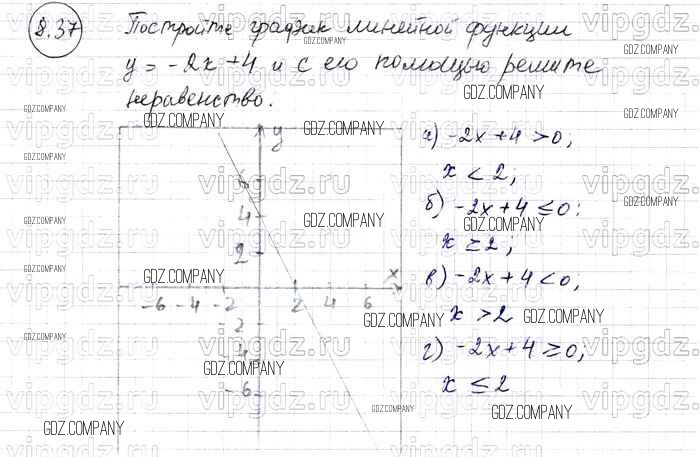 8.37 Постройте график линейной функции
y = -2x+4 и с его помощью решите
неравенство.
а) -2x+4 >0;
x < 2;
б) -2x+4 ≤0:
x ≥ 2;
в) -2x+4 <0;
x >2
г) -2x+4 ≥0;
x ≤ 2
y
6
4
2
x
-6 -4 -2 2 4 6
2
-4
-6
GDZ.COMPANY
vipgdz.ru